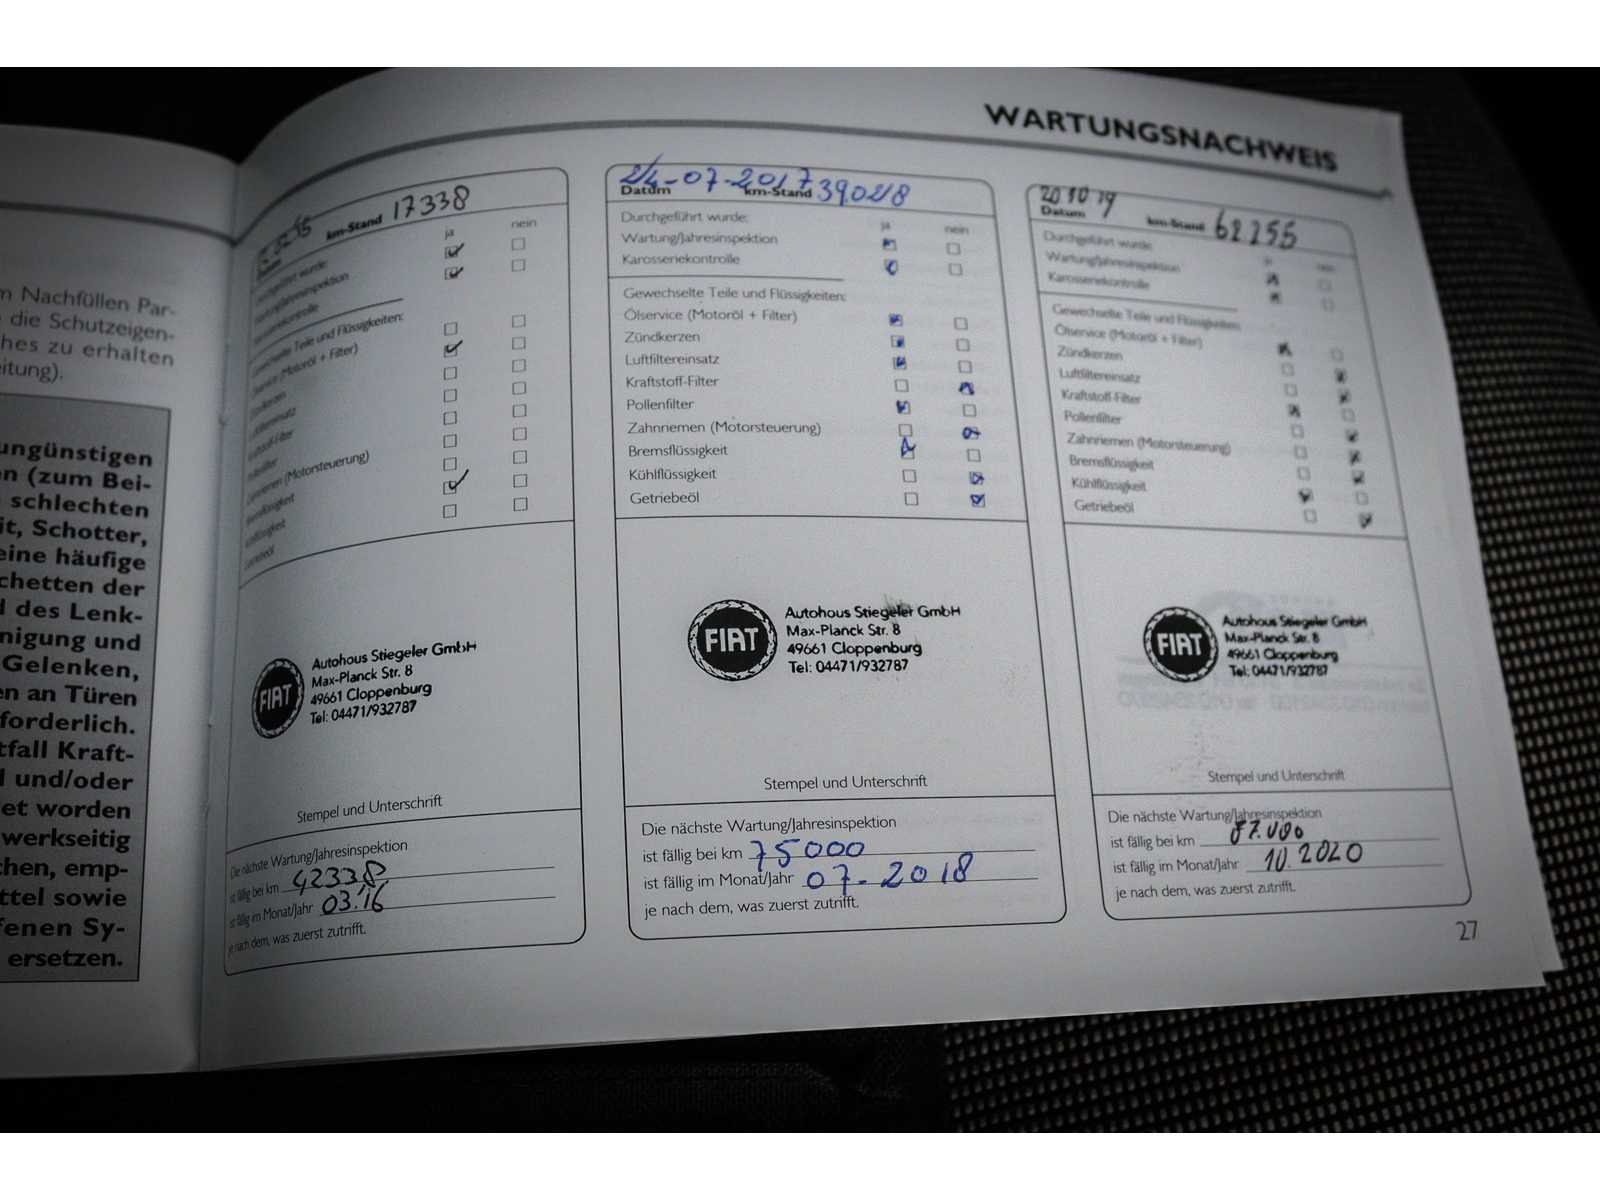 WARTUNGSNACHWEIS
m Nachfüllen Par-
die Schutzeigen-
ches zu erhalten
itung).
ungünstigen
en (zum Bei-
schlechten
it, Schotter,
eine häufige
chetten der
d des Lenk-
nigung und
Gelenken,
en an Türen
forderlich.
tfall Kraft-
l und/oder
et worden
werkseitig
chen, emp-
ttel sowie
fenen Sy-
ersetzen.
km-Stand 17338
ja nein
Durchgeführt wurde:
Wartung/Jahresinspektion
Karosseriekontrolle
Gewechselte Teile und Flüssigkeiten:
Ölservice (Motoröl + Filter)
Zündkerzen
Luftfiltereinsatz
Kraftstoff-Filter
Pollenfilter
Zahnriemen (Motorsteuerung)
Bremsflüssigkeit
Kühlflüssigkeit
Getriebeöl
FIAT
Autohaus Stiegeler GmbH
Max-Planck Str. 8
49661 Cloppenburg
Tel: 04471/932787
Stempel und Unterschrift
Die nächste Wartung/Jahresinspektion
ist fällig bei km 42338
ist fällig im Monat/Jahr 03.16
je nach dem, was zuerst zutrifft.
Datum 24-07-2017 km-Stand 39.028
Durchgeführt wurde: ja nein
Wartung/Jahresinspektion
Karosseriekontrolle
Gewechselte Teile und Flüssigkeiten:
Ölservice (Motoröl + Filter)
Zündkerzen
Luftfiltereinsatz
Kraftstoff-Filter
Pollenfilter
Zahnriemen (Motorsteuerung)
Bremsflüssigkeit
Kühlflüssigkeit
Getriebeöl
FIAT
Autohaus Stiegeler GmbH
Max-Planck Str. 8
49661 Cloppenburg
Tel: 04471/932787
Stempel und Unterschrift
Die nächste Wartung/Jahresinspektion
ist fällig bei km 75000
ist fällig im Monat/Jahr 07-2018
je nach dem, was zuerst zutrifft.
Datum km-Stand 62255
Durchgeführt wurde: ja nein
Wartung/Jahresinspektion
Karosseriekontrolle
Gewechselte Teile und Flüssigkeiten:
Ölservice (Motoröl + Filter)
Zündkerzen
Luftfiltereinsatz
Kraftstoff-Filter
Pollenfilter
Zahnriemen (Motorsteuerung)
Bremsflüssigkeit
Kühlflüssigkeit
Getriebeöl
FIAT
Autohaus Stiegeler GmbH
Max-Planck Str. 8
49661 Cloppenburg
Tel: 04471/932787
Stempel und Unterschrift
Die nächste Wartung/Jahresinspektion
ist fällig bei km
ist fällig im Monat/Jahr 10.2020
je nach dem, was zuerst zutrifft.
27